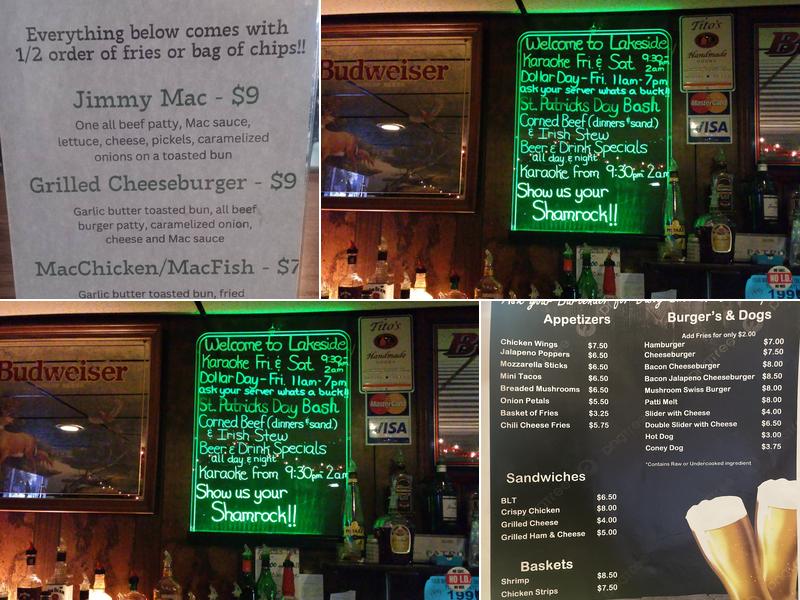 Everything below comes with
1/2 order of fries or bag of chips!!
Jimmy Mac - $9
One all beef patty, Mac sauce,
lettuce, cheese, pickels, caramelized
onions on a toasted bun
Grilled Cheeseburger - $9
Garlic butter toasted bun, all beef
burger patty, caramelized onion,
cheese and Mac sauce
MacChicken/MacFish - $7
Garlic butter toasted bun, fried
Budweiser
Welcome to Lakeside
Karaoke Fri. & Sat 9:30pm
2am
Dollar Day - Fri. 11am - 7pm
ask your server whats a buck!!
St. Patricks Day Bash
Corned Beef (dinners & sand)
& Irish Stew
Beer & Drink Specials
all day & night
Karaoke from 9:30pm 2am
Show us your
Shamrock!!
Tito's
Handmade
MasterCard
VISA
B
NO I.D.
1996
Budweiser
Welcome to Lakeside
Karaoke Fri. & Sat 9:30pm
2am
Dollar Day - Fri. 11am - 7pm
ask your server whats a buck!!
St. Patricks Day Bash
Corned Beef (dinners & sand)
& Irish Stew
Beer & Drink Specials
all day & night
Karaoke from 9:30pm 2am
Show us your
Shamrock!!
Tito's
Handmade
MasterCard
VISA
B
NO I.D.
1996
Ask your Bartender for
Appetizers
Chicken Wings $7.50
Jalapeno Poppers $6.50
Mozzarella Sticks $6.50
Mini Tacos $6.50
Breaded Mushrooms $6.50
Onion Petals $5.50
Basket of Fries $3.25
Chili Cheese Fries $5.75
Burger's & Dogs
Add Fries for only $2.00
Hamburger $7.00
Cheeseburger $7.50
Bacon Cheeseburger $8.00
Bacon Jalapeno Cheeseburger $8.50
Mushroom Swiss Burger $8.00
Patti Melt $8.00
Slider with Cheese $4.00
Double Slider with Cheese $6.50
Hot Dog $3.00
Coney Dog $3.75
*Contains Raw or Undercooked ingredient
Sandwiches
BLT $6.50
Crispy Chicken $8.00
Grilled Cheese $4.00
Grilled Ham & Cheese $5.00
Baskets
Shrimp $8.50
Chicken Strips $7.50